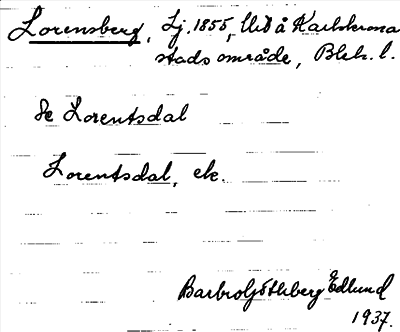 Lorensberg, Lj. 1855, Utö å Karlskrona
stadsområde, Blek. l.
Se Lorentsdal
Lorentsdal, ek.
Barbro Göthberg Edlund
1937.